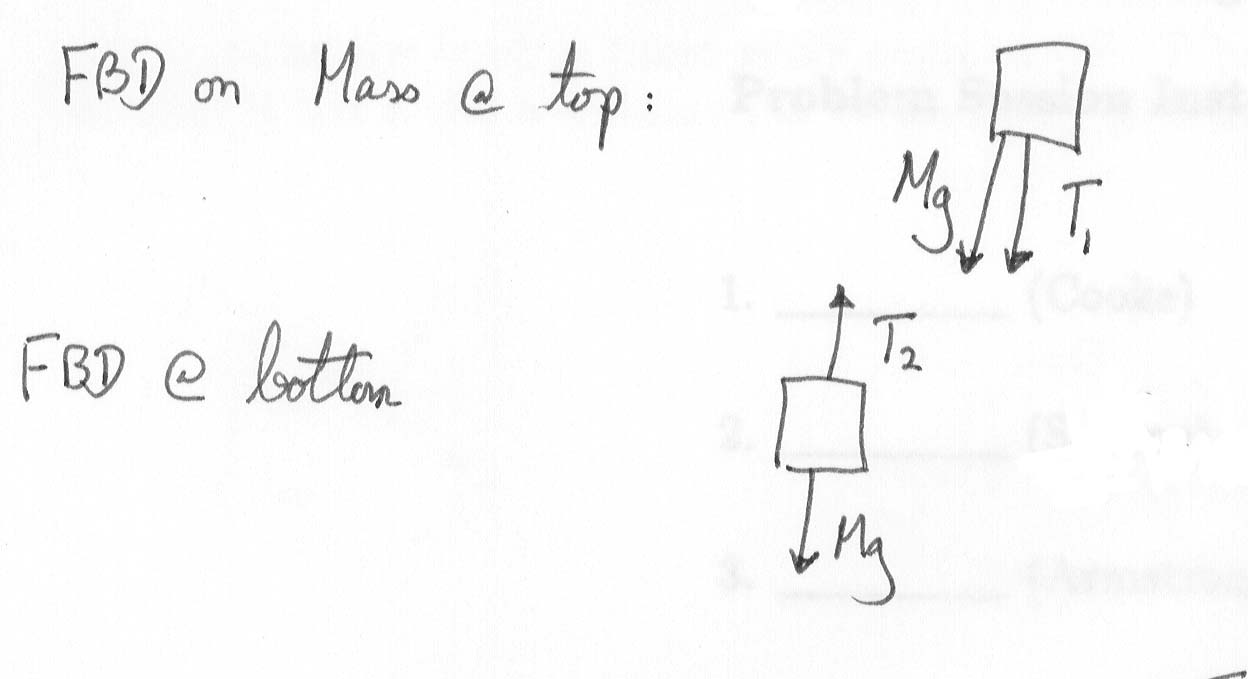 FBD on Mass @ top:
Mg T1
FBD @ bottom
T2
Mg
Problem Session Inst
1. __________ (Cooke)
2. __________ (S
3. __________ (Armstrong